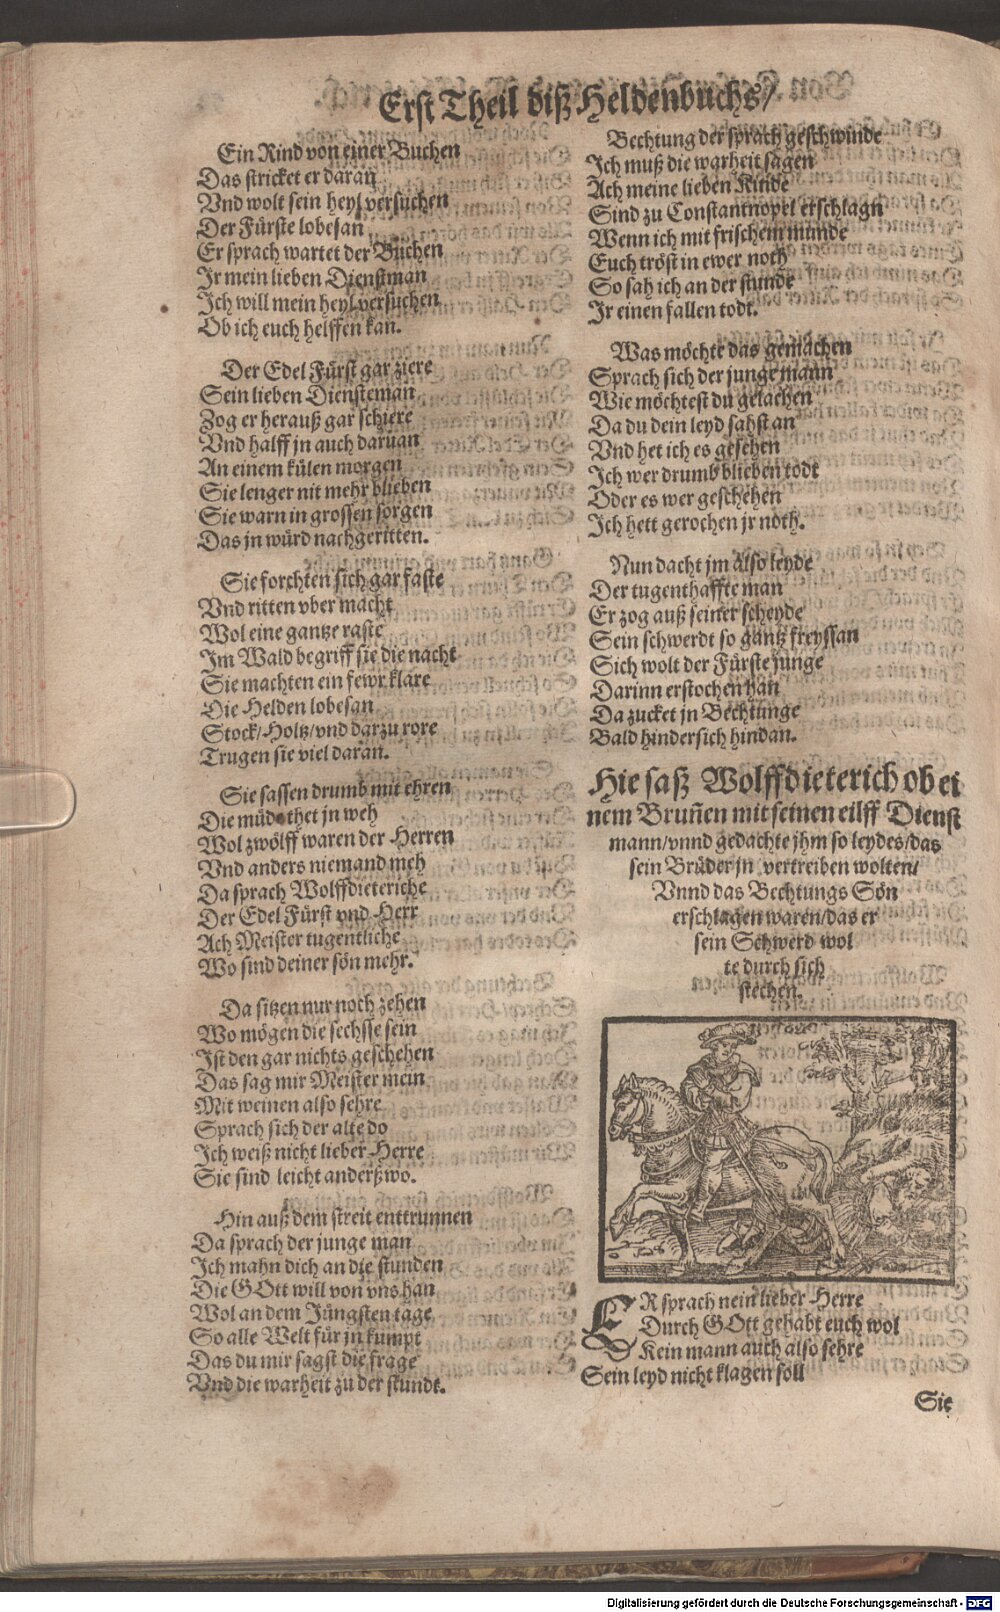 Erst Theil diß Heldenbuchs/
Ein Rind von einer Buchen
Das stricket er daran
Vnd wolt sein heyl versuchen
Der Fürste lobesan
Er sprach wartet der Büchen
Ir mein lieben Dienstman
Ich will mein heyl versuchen
Ob ich euch helffen kan.
Der Edel Fürst gar ziere
Sein lieben Diensteman
Zog er herauß gar schiere
Vnd halff jn auch daruan
An einem külen morgen
Sie lenger nit mehr blieben
Sie warn in grossen sorgen
Das jn würd nachgeritten.
Sie forchten sich gar faste
Vnd ritten vber macht
Wol eine gantze raste
Im Wald begriff sie die nacht
Sie machten ein fewr klare
Die Helden lobesan
Stock/Holtz/vnd darzu rore
Trugen sie viel daran.
Sie sassen drumb mit ehren
Die müde thet jn weh
Wol zwölff waren der Herren
Vnd anders niemand meh
Da sprach Wolffdieteriche
Der Edel Fürst vnd Herr
Ach Meister tugentliche
Wo sind deiner sön mehr.
Da sitzen nur noch zehen
Wo mögen die sechsse sein
Ist den gar nichts geschehen
Das sag mir Meister mein
Mit weinen also sehre
Sprach sich der alte do
Ich weiß nicht lieber Herre
Sie sind leicht anderßwo.
Hin auß dem streit enttrunnen
Da sprach der junge man
Ich mahn dich an die stunden
Die GOtt will von vns han
Wol an dem Jüngsten tage
So alle Welt für jn kumpt
Das du mir sagst die frage
Vnd die warheit zu der stundt.
Bechtung der sprach geschwinde
Ich muß die warheit sagen
Ach meine lieben Kinde
Sind zu Constantnopel erschlagn
Wenn ich mit frischem munde
Euch tröst in ewer noth
So sah ich an der stunde
Ir einen fallen todt.
Was möchte das gemachen
Sprach sich der junge mann
Wie möchtest du gelachen
Da du dein leyd sahst an
Vnd het ich es gesehen
Ich wer drumb blieben todt
Oder es wer geschehen
Ich hett gerochen jr noth.
Nun dacht jm also leyde
Der tugenthaffte man
Er zog auß seiner scheyde
Sein schwerdt so gantz freyssan
Sich wolt der Fürste junge
Darinn erstochen han
Da zucket jn Bechtunge
Bald hindersich hindan.
Hie saß Wolffdieterich ob ei
nem Brunen mit seinen eilff Dienst
mann/vnnd gedachte jhm so leydes/das
sein Brüder jn vertreiben wolten/
Vnnd das Bechtungs Sön
erschlagen waren/das er
sein Schwerd wol
te durch sich
stechen.
ER sprach nein lieber Herre
Durch GOtt gehabt euch wol
Kein mann auch also sehre
Sein leyd nicht klagen soll
Sie
Digitalisierung gefördert durch die Deutsche Forschungsgemeinschaft - DFG